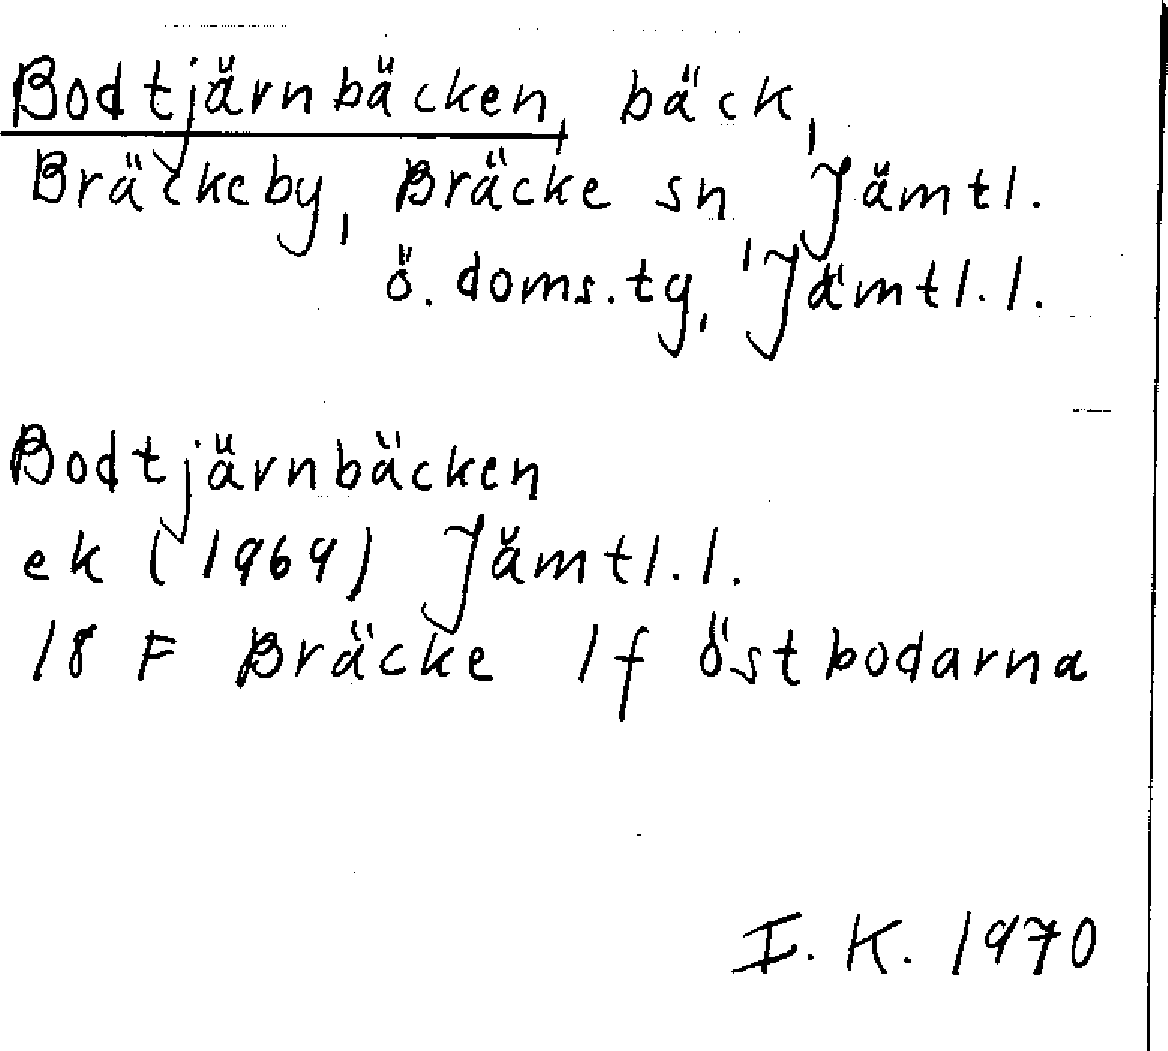 Bodtjärnbäcken, bäck,
Bräckeby, Bräcke sn, Jämtl.
ö. doms.tg, Jämtl.l.
Bodtjärnbäcken
ek (1969) Jämtl.l.
18 F Bräcke 1f Östbodarna
I. K. 1970